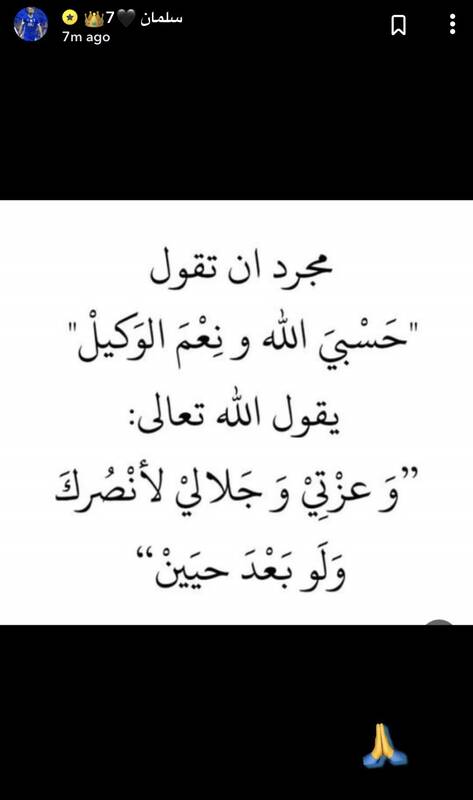 سلمان 🖤7👑
7m ago
مجرد ان تقول
"حَسْبيَ الله و نِعْمَ الوَكيلْ"
يقول الله تعالى:
”وَ عزْتِيْ وَ جَلاليْ لأنْصُركَ
وَلَو بَعْدَ حيَينْ“
🙏